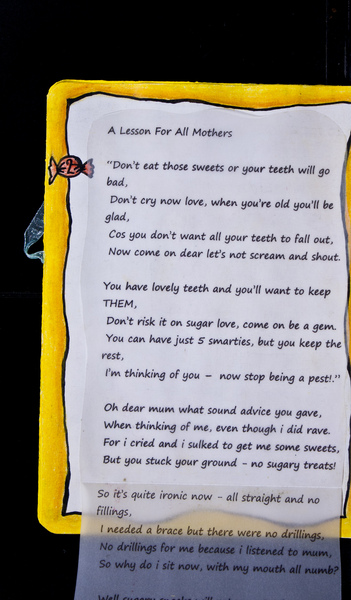 A Lesson For All Mothers
"Don't eat those sweets or your teeth will go
bad,
Don't cry now love, when you're old you'll be
glad,
Cos you don't want all your teeth to fall out,
Now come on dear let's not scream and shout.
You have lovely teeth and you'll want to keep
THEM,
Don't risk it on sugar love, come on be a gem.
You can have just 5 smarties, but you keep the
rest,
I'm thinking of you – now stop being a pest!."
Oh dear mum what sound advice you gave,
When thinking of me, even though i did rave.
For i cried and i sulked to get me some sweets,
But you stuck your ground - no sugary treats!
So it's quite ironic now - all straight and no
fillings,
I needed a brace but there were no drillings,
No drillings for me because i listened to mum,
So why do i sit now, with my mouth all numb?
Well sugary